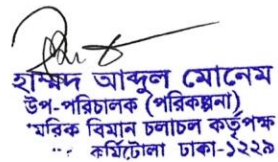 হাম্মদ আব্দুল মোনেম
উপ-পরিচালক (পরিকল্পনা)
মরিক বিমান চলাচল কর্তৃপক্ষ
কুর্মিটোলা ঢাকা-১২২৯